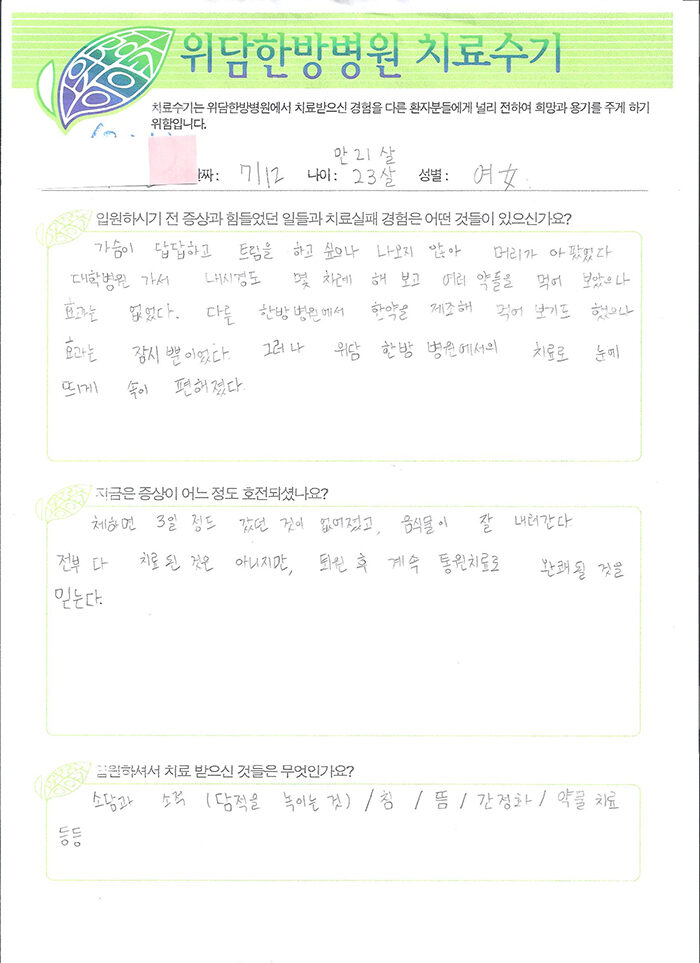 위담한방병원 치료수기
치료수기는 위담한방병원에서 치료받으신 경험을 다른 환자분들에게 널리 전하여 희망과 용기를 주게 하기
위함입니다.
만 21 살
날짜 : 7/12 나이 : 23살 성별 : 여 女
입원하시기 전 증상과 힘들었던 일들과 치료실패 경험은 어떤 것들이 있으신가요?
가슴이 답답하고 트림을 하고 싶으나 나오지 않아 머리가 아팠었다
대학병원 가서 내시경도 몇 차례 해 보고 여러 약들을 먹어 보았으나
효과는 없었다. 다른 한방병원에서 한약을 제조해 먹어 보기도 했으나
효과는 잠시 뿐이었다 그러나 위담 한방 병원에서의 치료로 눈에
띄게 속이 편해졌다.
지금은 증상이 어느 정도 호전되셨나요?
체하면 3일 정도 갔던 것이 없어졌고, 음식물이 잘 내려간다
전부 다 치료 된 것은 아니지만, 퇴원 후 계속 통원치료로 완쾌될 것을
믿는다.
입원하셔서 치료 받으신 것들은 무엇인가요?
소담과 소적 (담적을 녹이는 것) / 침 / 뜸 / 간정화 / 약물 치료
등등